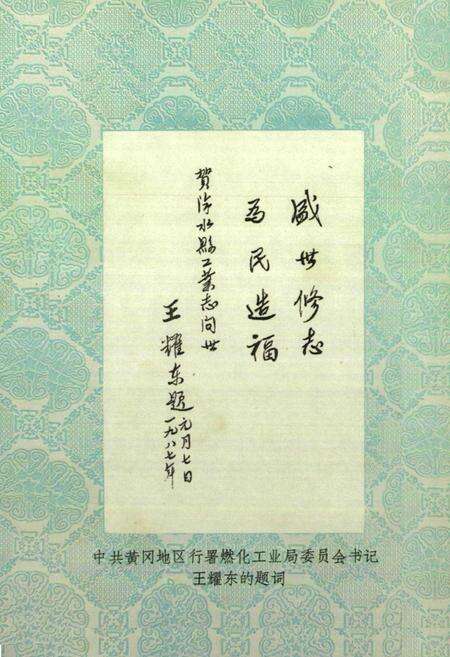 盛世修志
为民造福
贺浠水县工业志问世
王耀东题
一九八七年
元月七日
中共黄冈地区行署燃化工业局委员会书记
王耀东的题词